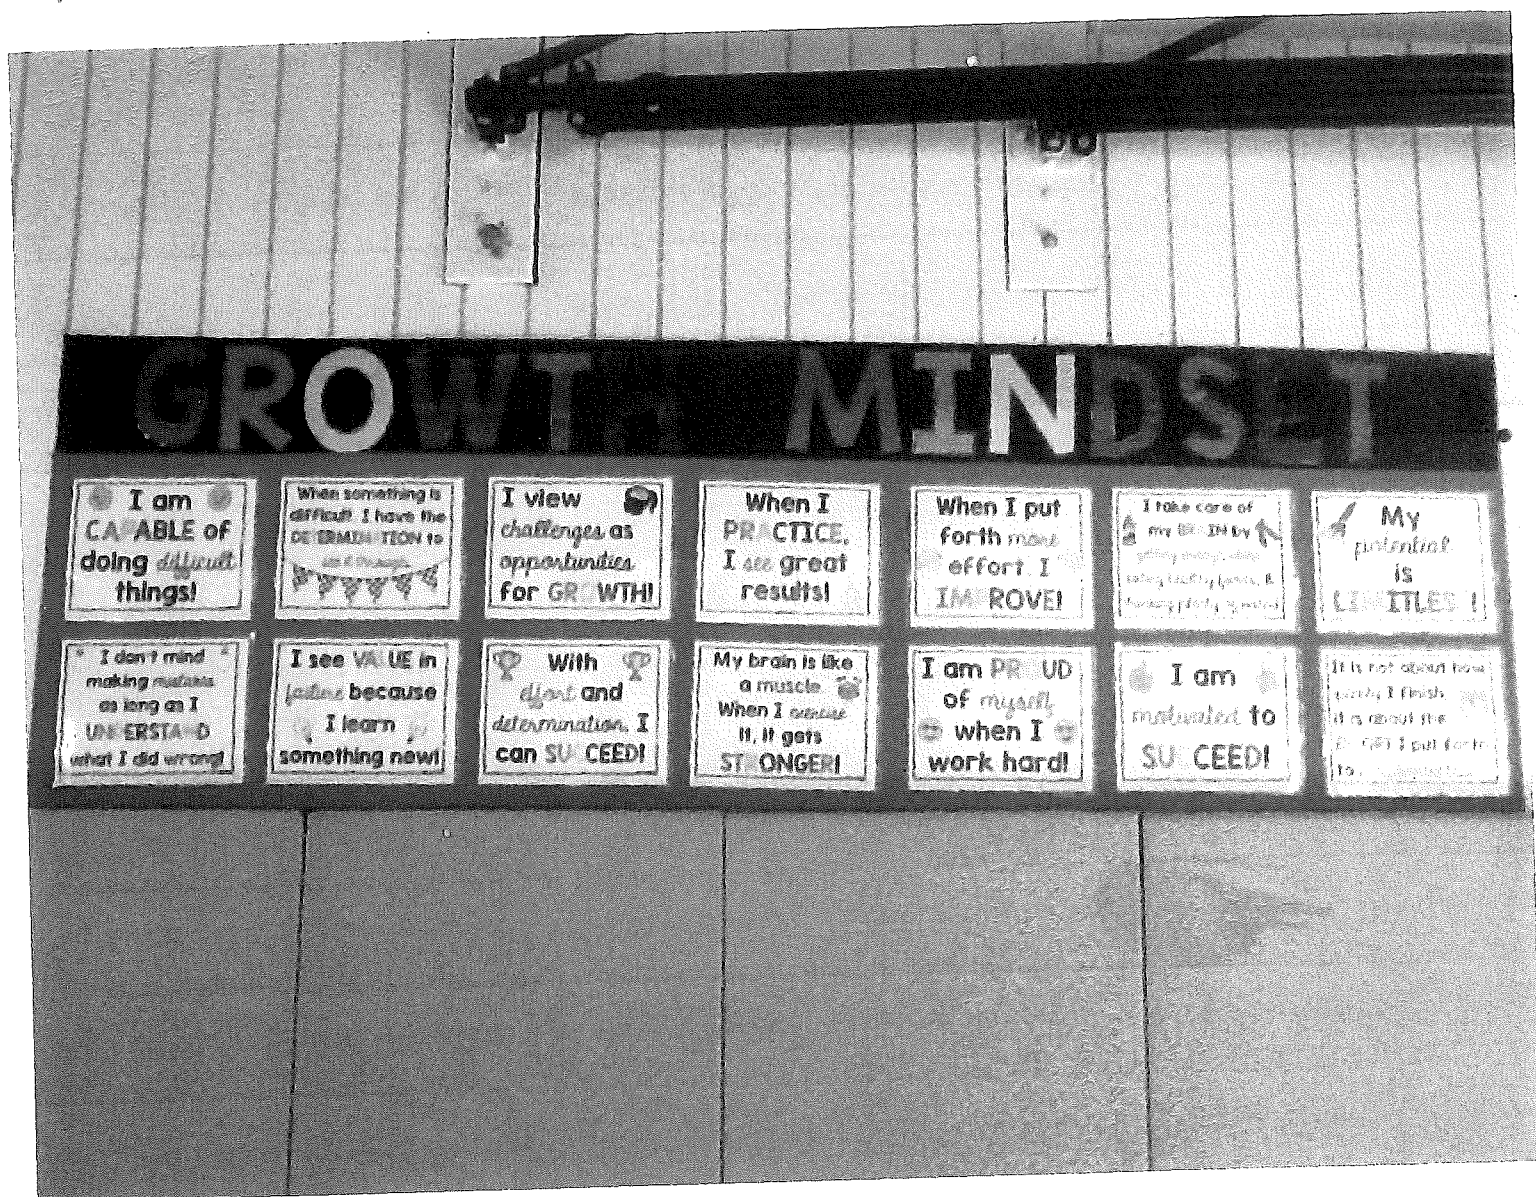 GROWTH MINDSET
I am
CAPABLE of
doing difficult
things!
When something is
difficult I have the
DETERMINATION to
see it through
I view
challenges as
opportunities
for GROWTH!
When I
PRACTICE,
I see great
results!
When I put
forth more
effort I
IMPROVE!
I take care of
my BRAIN by
getting enough sleep,
eating healthy foods, &
drinking plenty of water
My
potential
is
LIMITLESS!
I don't mind
making mistakes
as long as I
UNDERSTAND
what I did wrong!
I see VALUE in
failure because
I learn
something new!
With
effort and
determination, I
can SUCCEED!
My brain is like
a muscle.
When I exercise
it, it gets
STRONGER!
I am PROUD
of myself
when I
work hard!
I am
motivated to
SUCCEED!
It is not about how
I finish
it is about the
EFFORT I put forth
to